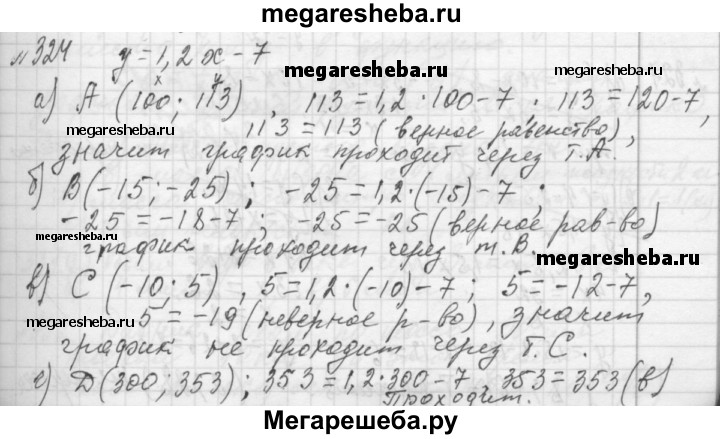 megaresheba.ru
№324 y=1,2x-7
megaresheba.ru
x y
а) А (100; 113), 113=1,2·100-7. 113=120-7,
megaresheba.ru
113=113 (верное равенство),
значит график проходит через т.А.
megaresheba.ru
б) В(-15;-25); -25=1,2·(-15)-7;
-25=-18-7; -25=-25 (верное рав-во)
megaresheba.ru
график проходит через т.В.
megaresheba.ru
в) С(-10;5), 5=1,2·(-10)-7; 5=-12-7,
megaresheba.ru
5=-19 (неверное р-во), значит
график не проходит через т.С.
megaresheba.ru
г) Д(300;353); 353=1,2·300-7, 353=353(в)
Проходит.
Мегарешеба.ру